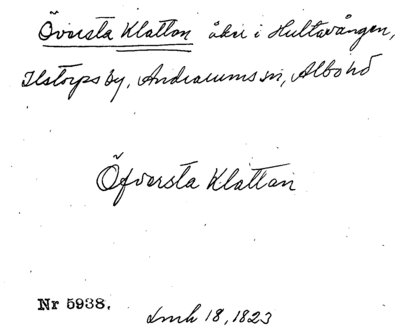 Översta Klattan åker i Hultavången,
Ilstorps by, Andrarums sn, Albo hd
Öfversta Klattan
Nr 5938.
Lmh 18, 1823